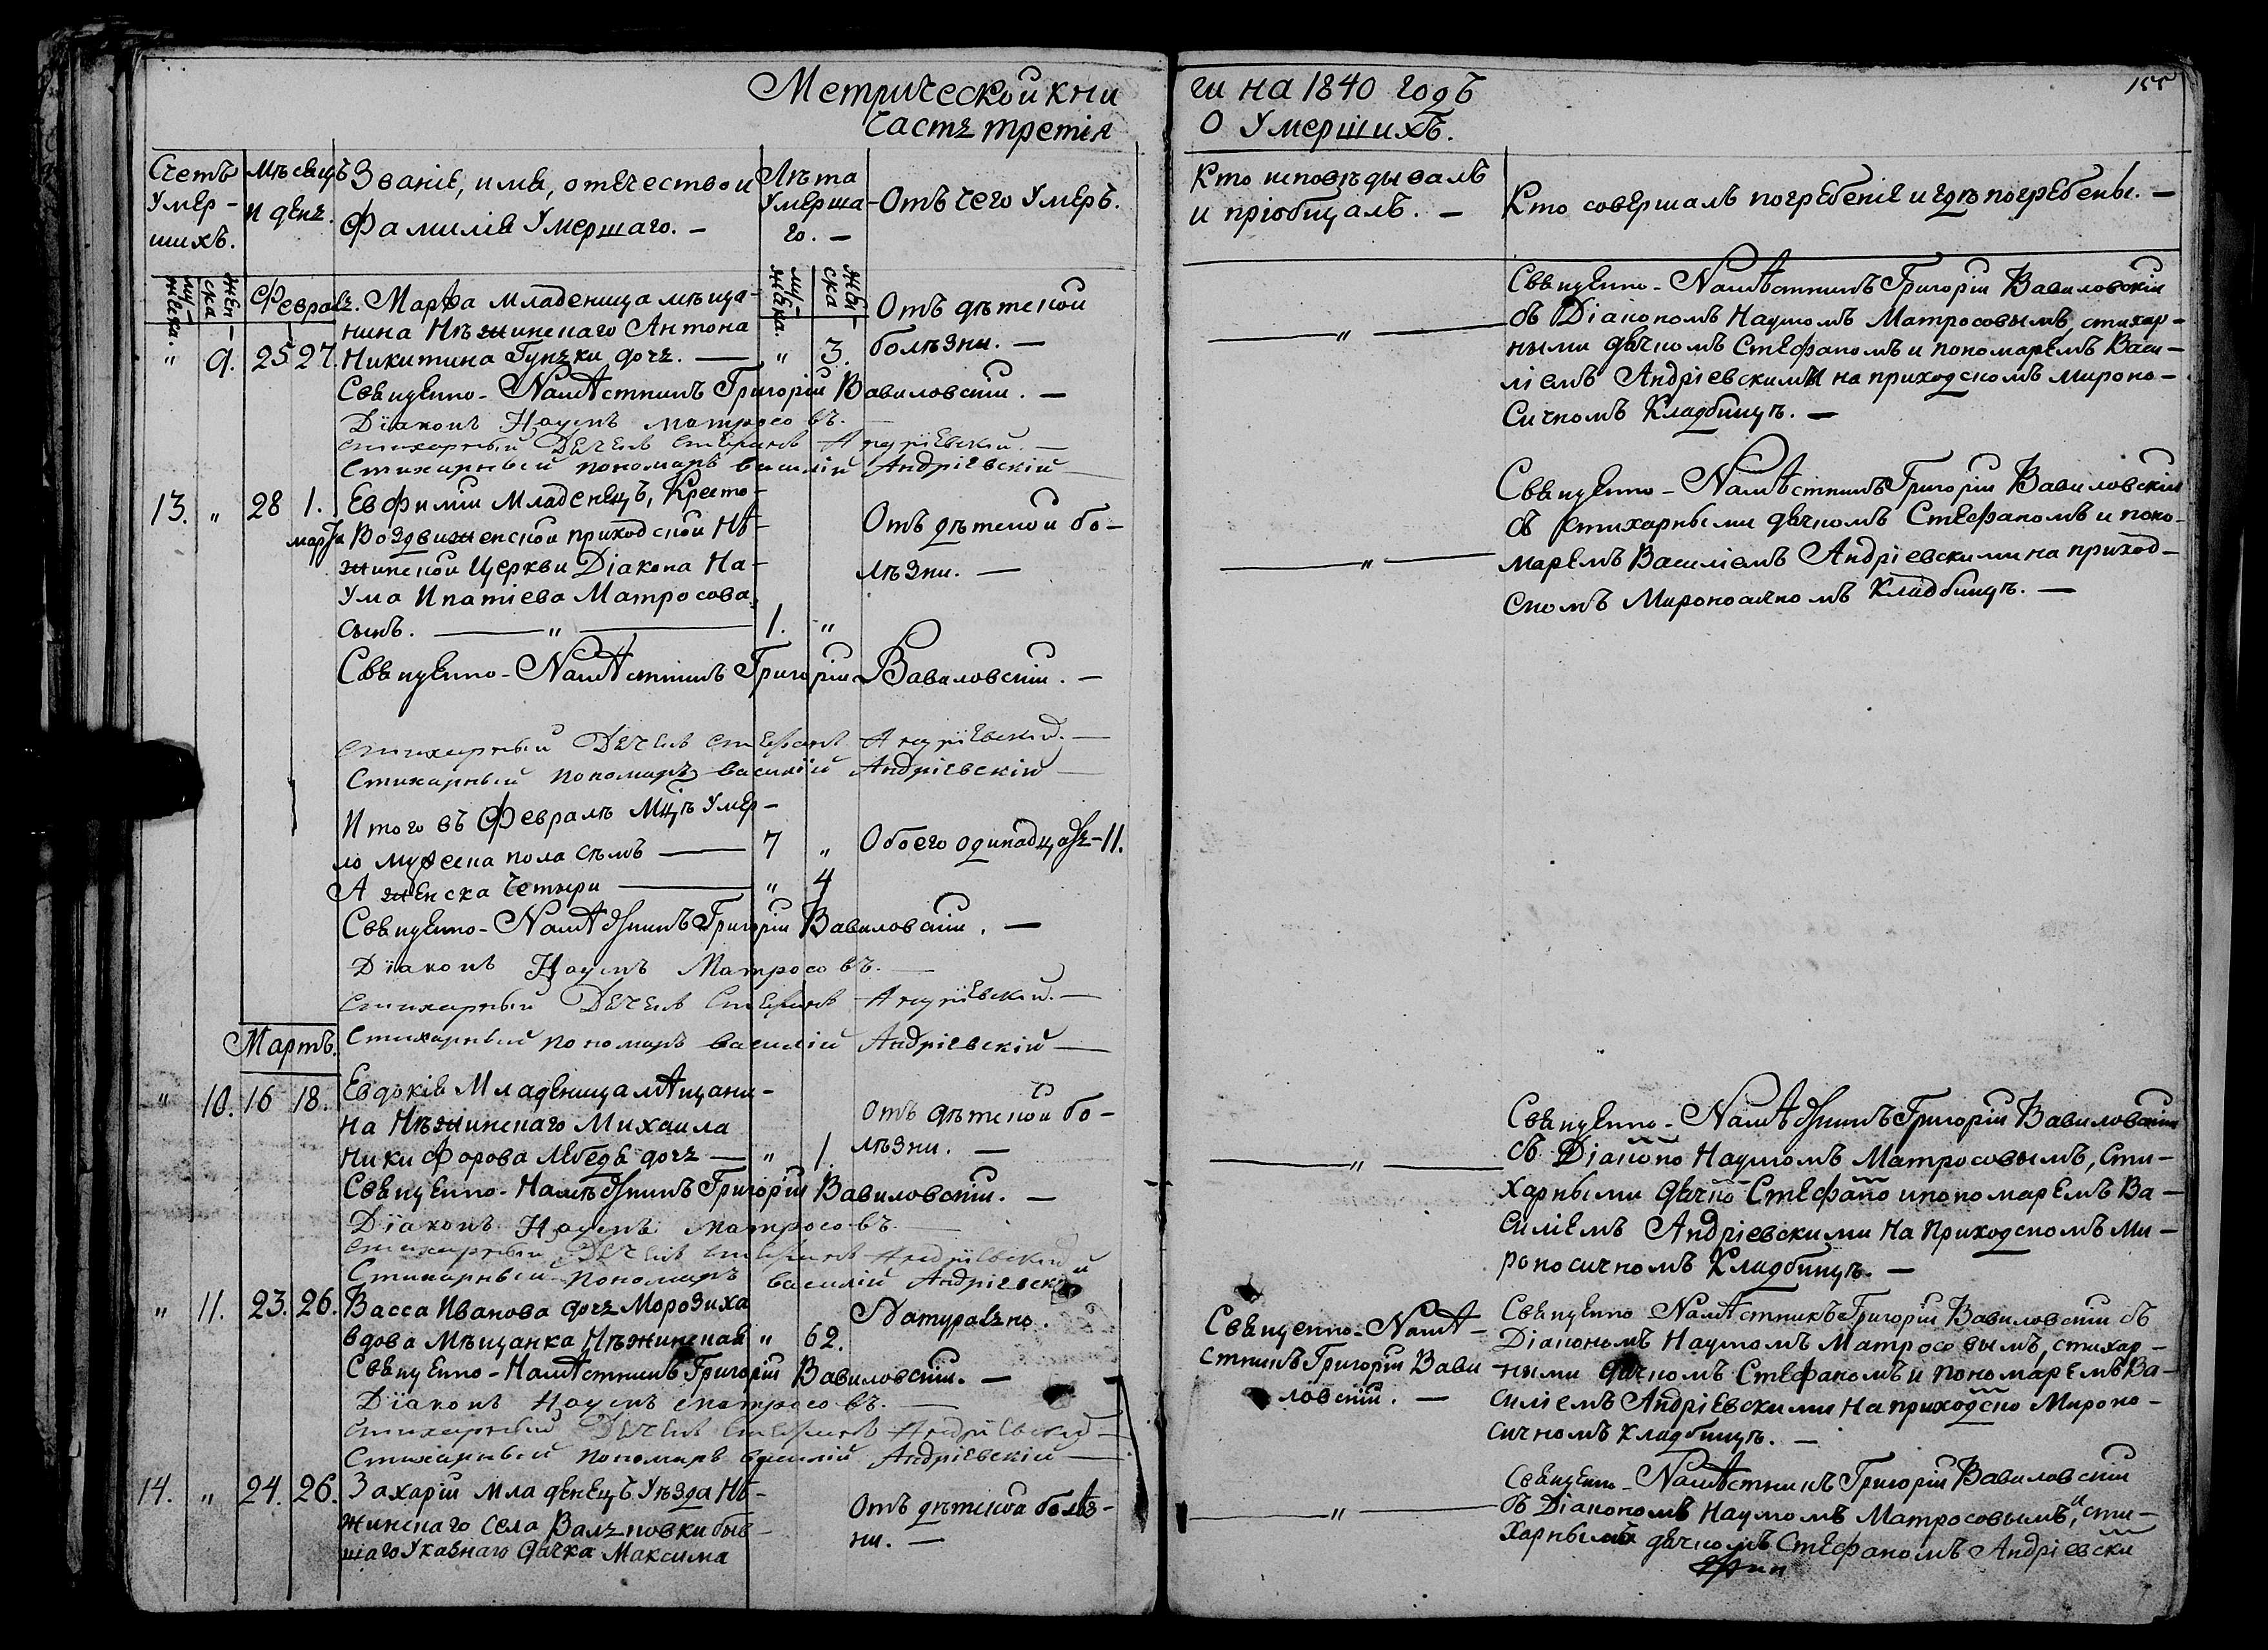 Метрической кни
Часть третія
Счетъ Умер-шихъ.
Мѣсяцъ и день.
Званіе, имя, отечество и Фамилія Умершаго. —
Лѣта Умерша-го. —
Отъ чего Умеръ.
му-жеска.
жен-ска
му-жеска.
жен-ска
Февраль.
Марѳа младеница мѣща-
нина Нѣжинскаго Антона
" 9. 25 27. Никитина Гунъки дочь. — " 3.
Отъ дѣтской
болѣзни. —
Священно-Намѣстникъ Григорій Вавиловскій. —
Діаконъ Наумъ Матросовъ. —
Стихарный Дячекъ Стефанъ Андріевскій. —
Стихарный пономарь Василій Андріевскій —
13. " 28 1. Евфимій Младенецъ, Кресто-
марта Воздвиженской приходской Нѣ-
жинской Церкви Діакона На-
ума Ипатіева Матросова
сынъ. — " — 1. "
Отъ дѣтской бо-
лѣзни. —
Священно-Намѣстникъ Григорій Вавиловскій. —
Стихарный Дячекъ Стефанъ Андріевскій. —
Стихарный пономарь Василій Андріевскій —
Итого въ Февралѣ Мцѣ Умер-
ло мужеска пола сѣмъ — 7 " Обоего одинадцать - 11.
А женска Четыри — " 4
Священно-Намѣстникъ Григорій Вавиловскій. —
Діаконъ Наумъ Матросовъ. —
Стихарный Дячекъ Стефанъ Андріевскій. —
Стихарный пономарь Василій Андріевскій —
Мартъ.
" 10. 16 18. Евдокія Младеница мѣщани-
на Нѣжинскаго Михаила
Никифорова Лебедя дочь — " 1.
Отъ дѣтской бо-
лѣзни. —
Священно-Намѣстникъ Григорій Вавиловскій. —
Діаконъ Наумъ Матросовъ. —
Стихарный Дячекъ Стефанъ Андріевскій
Стихарный пономарь Василій Андріевскій
" 11. 23. 26. Васса Иванова дочь Морозиха
вдова Мѣщанка Нѣжинская " 62.
Натурально.
Священно-Намѣстникъ Григорій Вавиловскій. —
Діаконъ Наумъ Матросовъ. —
Стихарный Дячекъ Стефанъ Андріевскій —
Стихарный пономарь Василій Андріевскій —
14. " 24. 26. Захарій младенецъ Уѣзда Нѣ-
жинскаго села Валъковки быв-
шаго Указнаго дячка Максима
Отъ дѣтской болѣз-
ни. —
155
ги на 1840 годъ
О Умершихъ.
Кто исповѣдывалъ и пріобщалъ. —
Кто совершалъ погребеніе и гдѣ погребены. —
— " —
Священно-Намѣстникъ Григорій Вавиловскій
съ Діакономъ Наумомъ Матросовымъ, стихар-
ными дячкомъ Стефаномъ и пономаремъ Васи-
ліемъ Андріевскими на приходскомъ Мироно-
сичномъ Кладбищѣ. —
— " —
Священно-Намѣстникъ Григорій Вавиловскій
съ стихарными дячкомъ Стефаномъ и поно-
маремъ Василіемъ Андріевскими на приход-
скомъ Мироносичномъ Кладбищѣ. —
— " —
Священно-Намѣстникъ Григорій Вавиловскій
съ Діаконо Наумомъ Матросовымъ, Сти-
харными дячко Стефано и пономаремъ Ва-
силіемъ Андріевскими на Приходскомъ Ми-
роносичномъ Кладбищѣ. —
Священно-Намѣ-
стникъ Григорій Вави
ловскій. —
Священно Намѣстникъ Григорій Вавиловскій съ
Діакономъ Наумомъ Матросовымъ, стихар-
ными дячкомъ Стефаномъ и пономаремъ Ва-
силіемъ Андріевскими на приходско Мироно-
сичномъ Кладбищѣ. —
— " —
Священно-Намѣстникъ Григорій Вавиловскій
съ Діакономъ Наумомъ Матросовымъ, и сти-
харнымъ дячкомъ Стефаномъ Андріевски